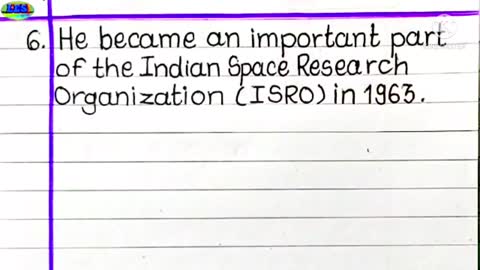 6. He became an important part
of the Indian Space Research
Organization (ISRO) in 1963.